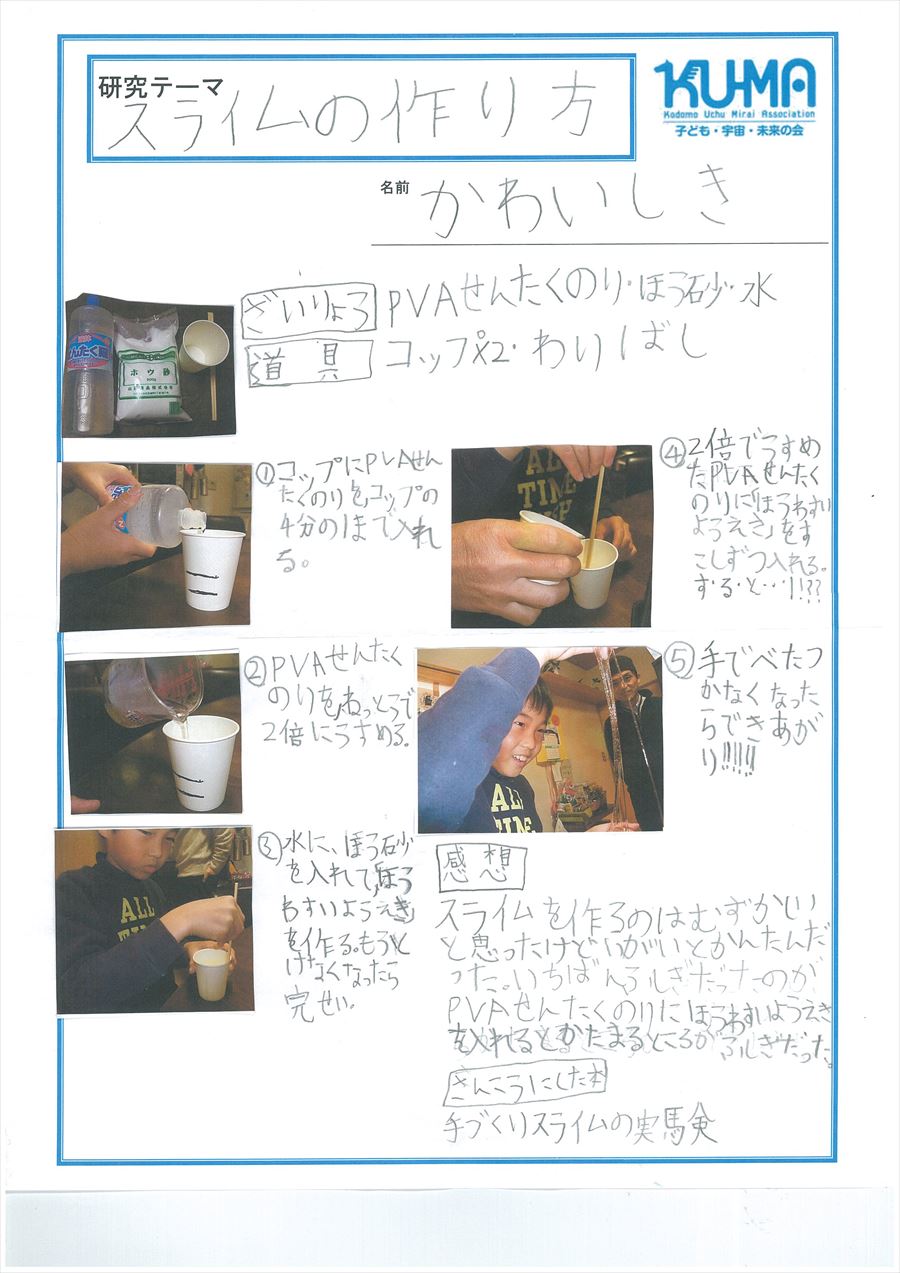 研究テーマ
スライムの作り方
KU-MA
Kodomo Uchu Mirai Association
子ども・宇宙・未来の会
名前 かわいしき
ざいりょう PVAせんたくのり・ほう砂・水
道具 コップ×2・わりばし
ホウ砂
①コップにPVAせん
たくのりをコップの
4分の1まで入れ
る。
②PVAせんたく
のりを、ねっとうで
2倍にうすめる。
③水に、ほう砂
を入れて「ほう
わすいようえき」
を作る。もうと
けなくなったら
完せい。
④2倍でうすめ
たPVAせんたく
のりに「ほうわすい
ようえき」をす
こしずつ入れる。
す・る・と・・・!!??
⑤手でべたつ
かなくなった
らできあが
り!!!!!
ALL
TIME
感想
スライムを作るのはむずかしい
と思ったけどいがいとかんたんだ
った。いちばんふしぎだったのが
PVAせんたくのりにほうわすいようえき
を入れるとかたまるところがふしぎだった。
さんこうにした本
手づくりスライムの実験